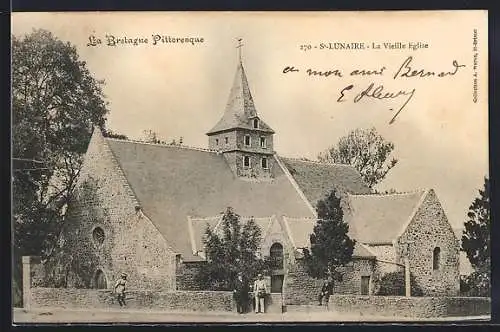 La Bretagne Pittoresque
270 - St-LUNAIRE - La Vieille Eglise
a mon ami Bernard
Collection A. Waron, St-Brieuc